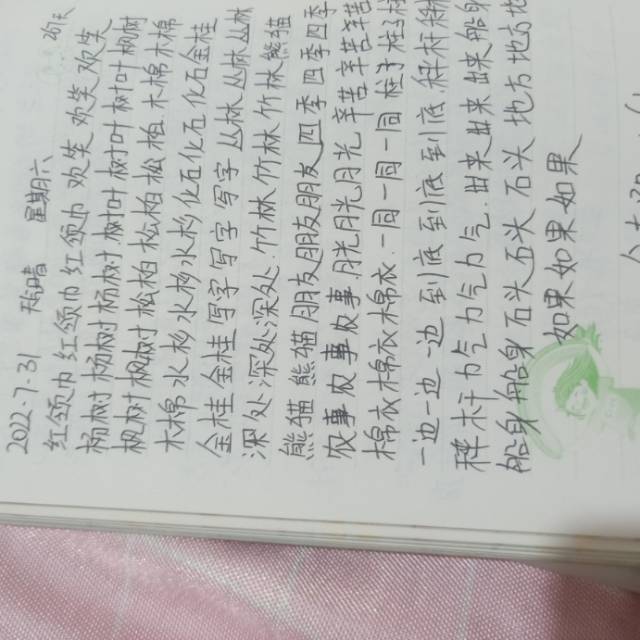 2022.7.31 星期六
红领巾 红领巾 红领巾 欢笑 欢笑
杨树 杨树 杨树 树叶 树叶 树叶 枫树
枫树 枫树 松柏 松柏 松柏 木棉 木棉
木棉 水杉 水杉 水杉 化石 化石 化石 金桂
金桂 金桂 写字 写字 写字 丛林 丛林 丛林
深处 深处 深处 竹林 竹林 竹林 熊猫
熊猫 熊猫 朋友 朋友 朋友 四季 四季 四季
农事 农事 农事 月光 月光 月光 辛苦 辛苦 辛苦
棉衣 棉衣 棉衣 一同 一同 一同 柱子
一边 一边 一边 到底 到底 到底 秤杆 秤杆
秤杆 力气 力气 力气 出来 出来 出来 船身
船身 船身 石头 石头 石头 地方 地方
如果 如果 如果